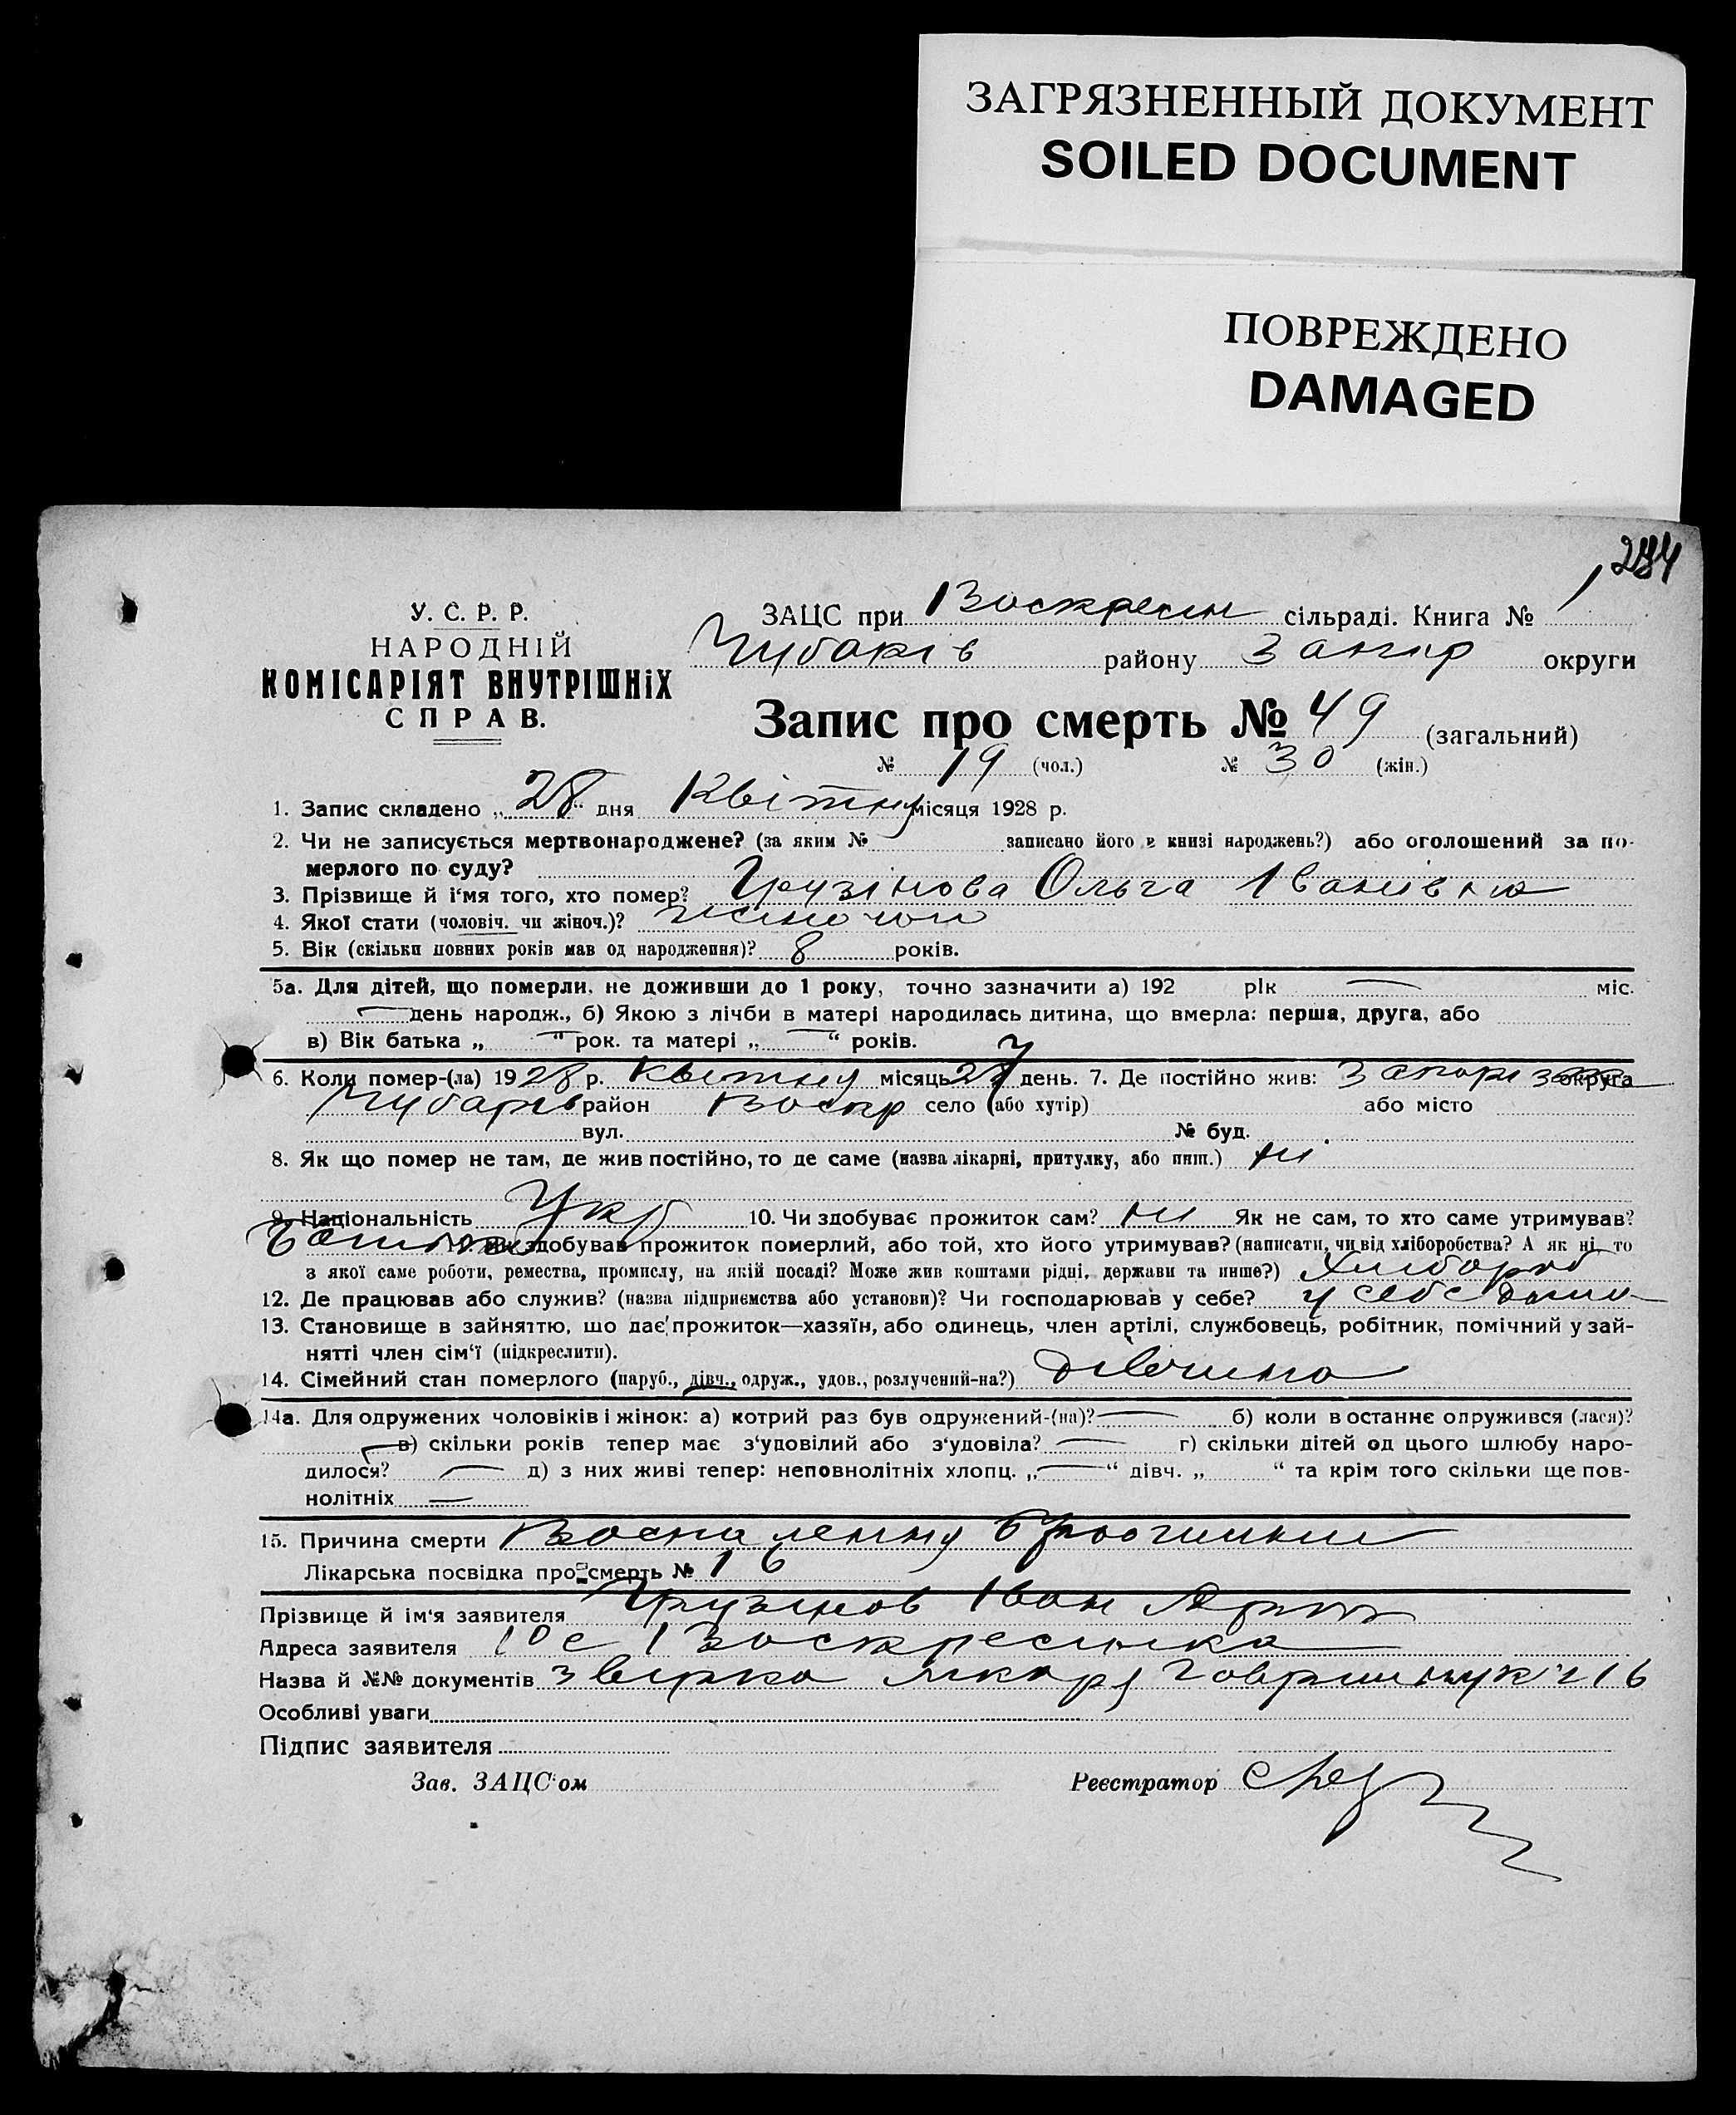 ЗАГРЯЗНЕННЫЙ ДОКУМЕНТ
SOILED DOCUMENT
ПОВРЕЖДЕНО
DAMAGED
У. С. Р. Р.
НАРОДНІЙ
КОМІСАРІЯТ ВНУТРІШНІХ
СПРАВ.
ЗАЦС при Воскресен сільраді. Книга № 1
Чубарів району Запор округи
Запис про смерть № 49 (загальний)
№ 19 (чол.) № 30 (жін.)
1. Запис складено „28“ дня Квітню місяця 1928 р.
2. Чи не записується мертвонароджене? (за яким № записано його в книзі народжень?) або оголошений за по-
мерлого по суду?
3. Прізвище й і'мя того, хто помер? Грузінова Ольга Іванівна
4. Якої стати (чоловіч. чи жіноч.)? жиночои
5. Вік (скільки повних років мав од народження)? 8 років.
5а. Для дітей, що померли, не доживши до 1 року, точно зазначити а) 192 рік — міс.
— день народж., б) Якою з лічби в матері народилась дитина, що вмерла: перша, друга, або
в) Вік батька „ —“ рок. та матері „ —“ років.
6. Коли помер-(ла) 1928 р. Квітню місяць 27 день. 7. Де постійно жив: округа
Чубарів район Воскр село (або хутір) або місто
вул. № буд.
8. Як що помер не там, де жив постійно, то де саме (назва лікарні, притулку, або инш.) ні
9. Національність Укр 10. Чи здобуває прожиток сам? ни Як не сам, то хто саме утримував?
Батько 11. Як здобував прожиток померлий, або той, хто його утримував? (написати, чи від хліборобства? А як ні, то
з якої саме роботи, ремества, промислу, на якій посаді? Може жив коштами рідні, держави та инше?) Хлибороб
12. Де працював або служив? (назва підприємства або установи)? Чи господарював у себе? у себе дома
13. Становище в зайняттю, що дає прожиток—хазяїн, або одинець, член артілі, службовець, робітник, помічний у зай-
нятті член сім'ї (підкреслити).
14. Сімейний стан померлого (паруб., дівч., одруж., удов., розлучений-на?) дівчина
14а. Для одружених чоловіків і жінок: а) котрий раз був одружений-(на)? — б) коли в останнє одружився (лася)?
— в) скільки років тепер має з'удовілий або з'удовіла? — г) скільки дітей од цього шлюбу наро-
дилося? — д) з них живі тепер: неповнолітніх хлопц. „—“ дівч. „ “ та крім того скільки ще пов-
нолітніх —
15. Причина смерти Воспаленню брюшини
Лікарська посвідка про смерть № 16
Прізвище й ім'я заявителя Грузинов Іван
Адреса заявителя с Воскресенка
Назва й №№ документів лікаря 16
Особливі уваги
Підпис заявителя
Зав. ЗАЦС'ом Реєстратор